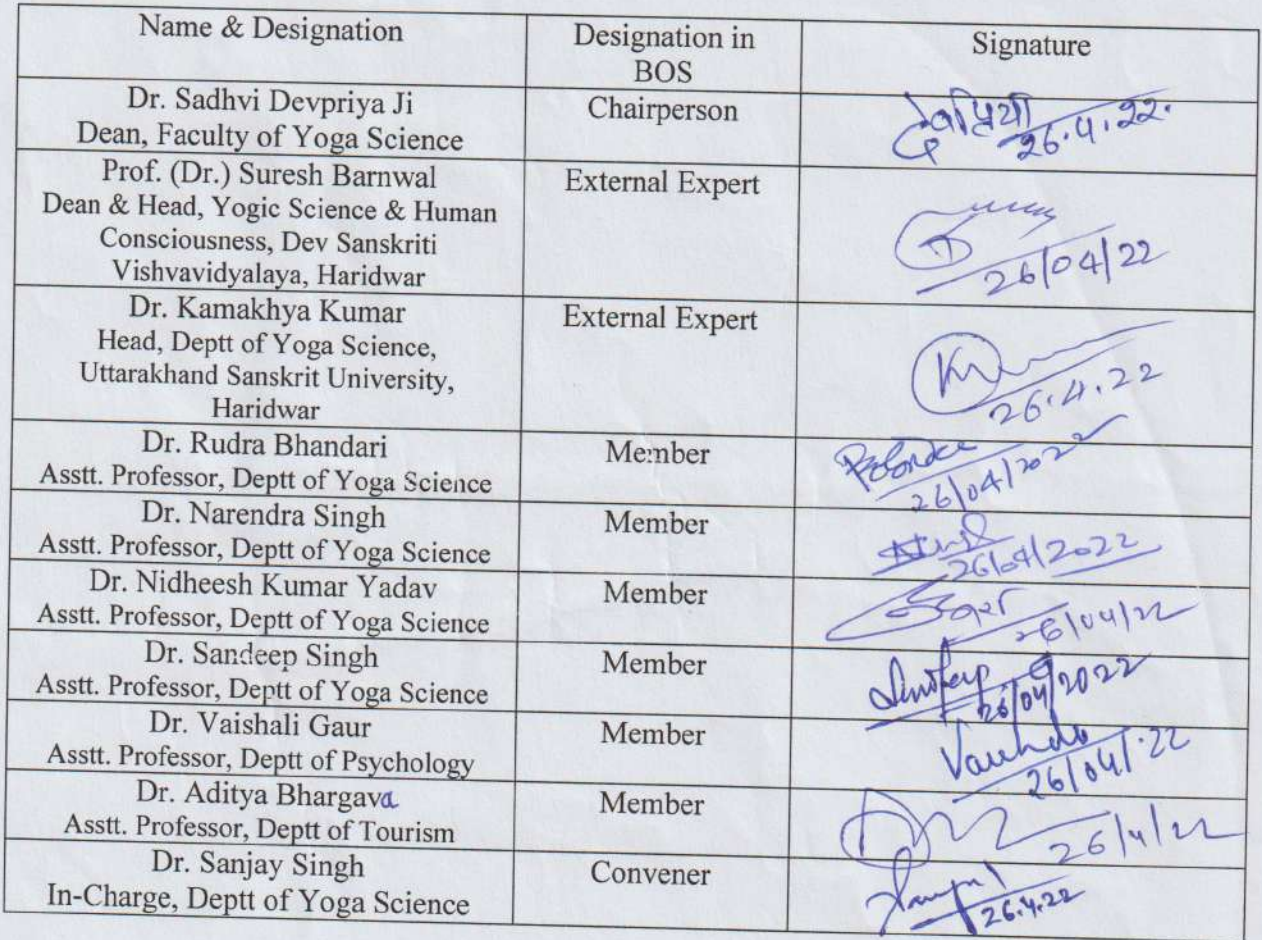 Name & Designation
Designation in
BOS
Signature
Dr. Sadhvi Devpriya Ji
Dean, Faculty of Yoga Science
Chairperson
देवप्रिया
26.4.22.
Prof. (Dr.) Suresh Barnwal
Dean & Head, Yogic Science & Human
Consciousness, Dev Sanskriti
Vishvavidyalaya, Haridwar
External Expert
26/04/22
Dr. Kamakhya Kumar
Head, Deptt of Yoga Science,
Uttarakhand Sanskrit University,
Haridwar
External Expert
26.4.22
Dr. Rudra Bhandari
Asstt. Professor, Deptt of Yoga Science
Member
26/04/2022
Dr. Narendra Singh
Asstt. Professor, Deptt of Yoga Science
Member
26/04/2022
Dr. Nidheesh Kumar Yadav
Asstt. Professor, Deptt of Yoga Science
Member
26/04/22
Dr. Sandeep Singh
Asstt. Professor, Deptt of Yoga Science
Member
Sandeep
26/04/2022
Dr. Vaishali Gaur
Asstt. Professor, Deptt of Psychology
Member
26/04/22
Dr. Aditya Bhargava
Asstt. Professor, Deptt of Tourism
Member
26/4/22
Dr. Sanjay Singh
In-Charge, Deptt of Yoga Science
Convener
26.4.22